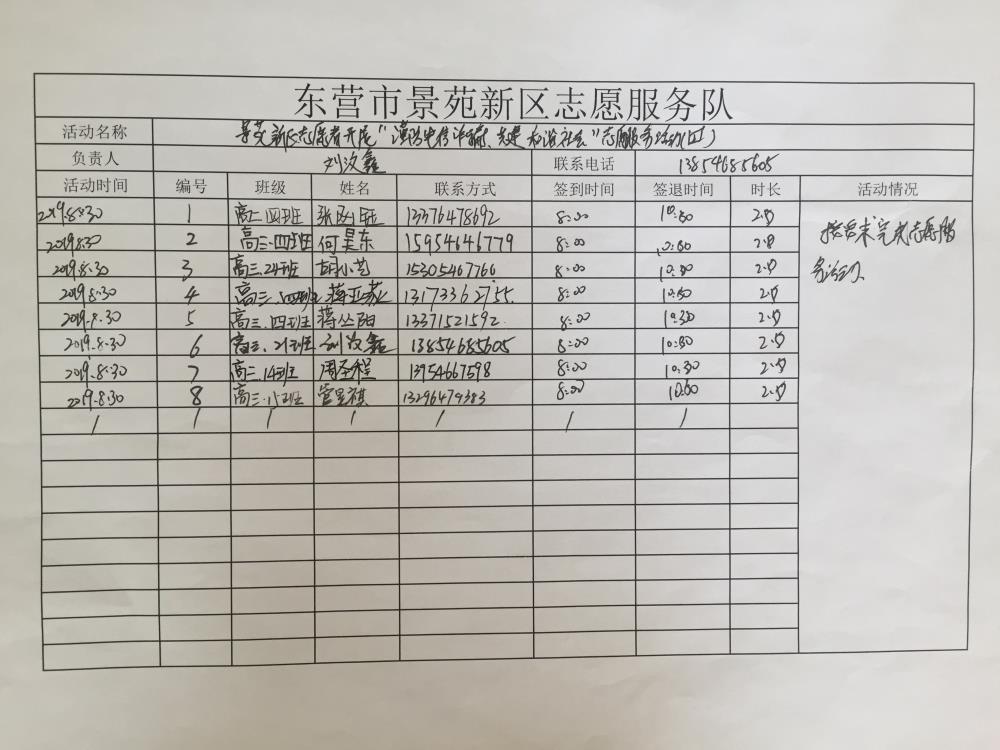 东营市景苑新区志愿服务队
活动名称 景苑新区志愿者开展"谨防电信诈骗,共建和谐社会"志愿服务活动(四)
负责人 刘汶鑫 联系电话 13854685605
活动时间 编号 班级 姓名 联系方式 签到时间 签退时间 时长 活动情况
2019.8.30 1 高二四班 13376478692 8:00 2.5
2019.8.30 2 高三.四班 何昊东 15954646779 8:00 2.5
2019.8.30 3 高三.24班 胡小艺 15305467766 8:00 10:30 2.5
2019.8.30 4 高三.四班 蒋亚茹 13173362755. 8:00 10:30 2.5
2019.8.30 5 高三.四班 蒋丛阳 13371521592. 8:00 10:30 2.5
2019.8.30 6 高三.21班 刘汶鑫 13854685605 8:00 10:30 2.5
2019.8.30 7 高三.14班 周圣程 13954667598 8:00 10:30 2.5
2019.8.30 8 高三.15班 管呈祺 13296479383 8:00 2.5
/ / / / / / /
按要求完成志愿服
务活动.